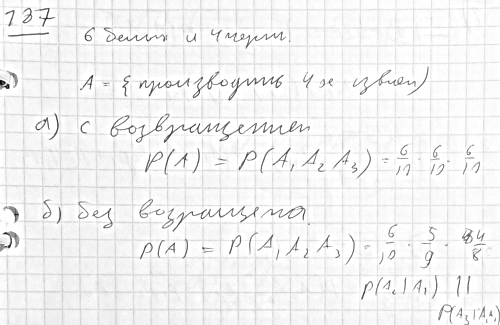 137
6 белых и 4 черн.
A = { производить 4 х извлеч}
а) с возвращением
P(A) = P(A₁ A₂ A₃) = 6/10 · 6/10 · 6/10
б) без возращена.
P(A) = P(A₁ A₂ A₃) = 6/10 · 5/9 · 4/8
P(A₂|A₁) ||
P(A₃|A₁A₂)